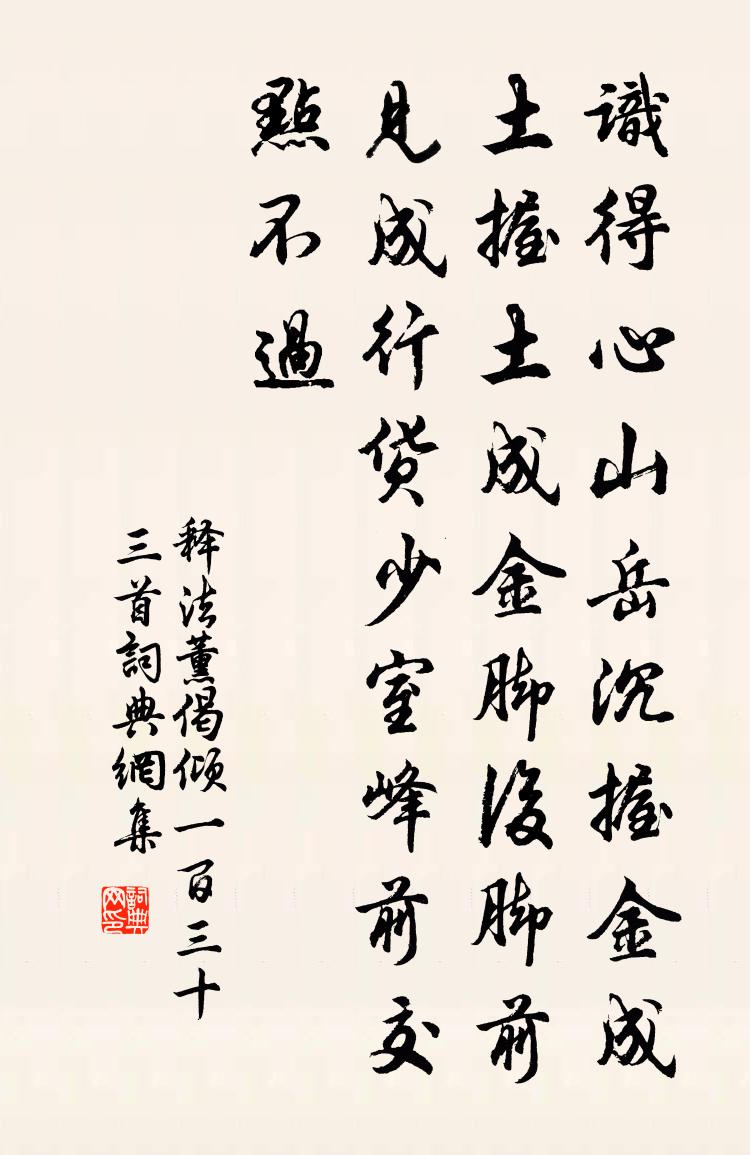 識得心山岳沉握金成
土握土成金脚後脚前
見成行货少室峰前交
點不過
释法薰偈倾一百三十
三首詞典網集
詞典网印